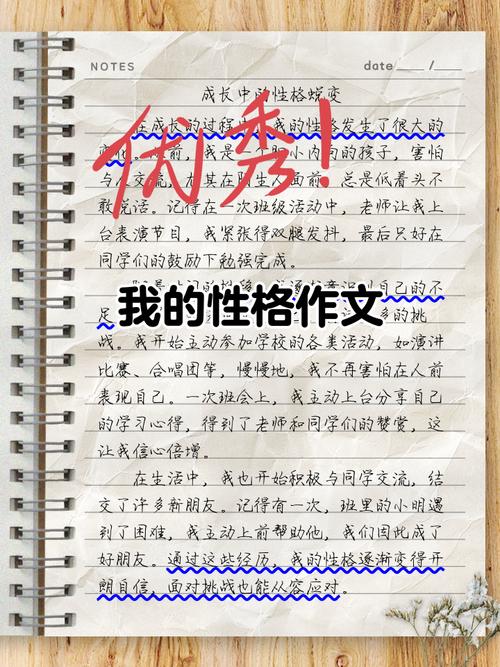 NOTES
date ___ / ___
成长中的性格蜕变
在成长的过程中，我的性格发生了很大的
变化。以前，我是个胆小内向的孩子，害怕
与人交流，尤其在陌生人面前，总是低着头不
敢说话。记得在一次班级活动中，老师让我上
台表演节目，我紧张得双腿发抖，最后只好在
同学们的鼓励下勉强完成。
自己的不
足
我的性格作文
多的挑
战。我开始主动参加学校的各类活动，如演讲
比赛、合唱团等，慢慢地，我不再害怕在人前
表现自己。一次班会上，我主动上台分享自己
的学习心得，得到了老师和同学们的赞赏，这
让我信心倍增。
在生活中，我也开始积极与同学交流，结
交了许多新朋友。记得有一次，班里的小明遇
到了困难，我主动上前帮助他，我们因此成了
好朋友。通过这些经历，我的性格逐渐变得开
朗自信，面对挑战也能从容应对。
优秀！